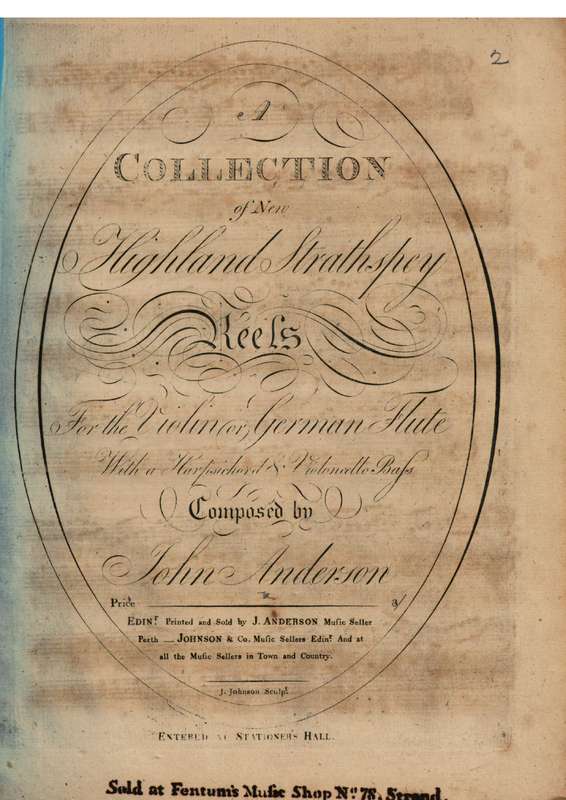 2
A
COLLECTION
of New
Highland Strathspey
Reels
For the Violin (or) German Flute
With a Harpsichord & Violoncello Baſs
Composed by
John Anderson
Price 3/
EDINr. Printed and Sold by J. ANDERSON Muſic Seller
Perth — JOHNSON & Co. Muſic Sellers Edinr. And at
all the Muſic Sellers in Town and Country.
J. Johnson Sculpt.
ENTERED AT STATIONER'S HALL.
Sold at Fentum's Muſic Shop No. 78, Strand.